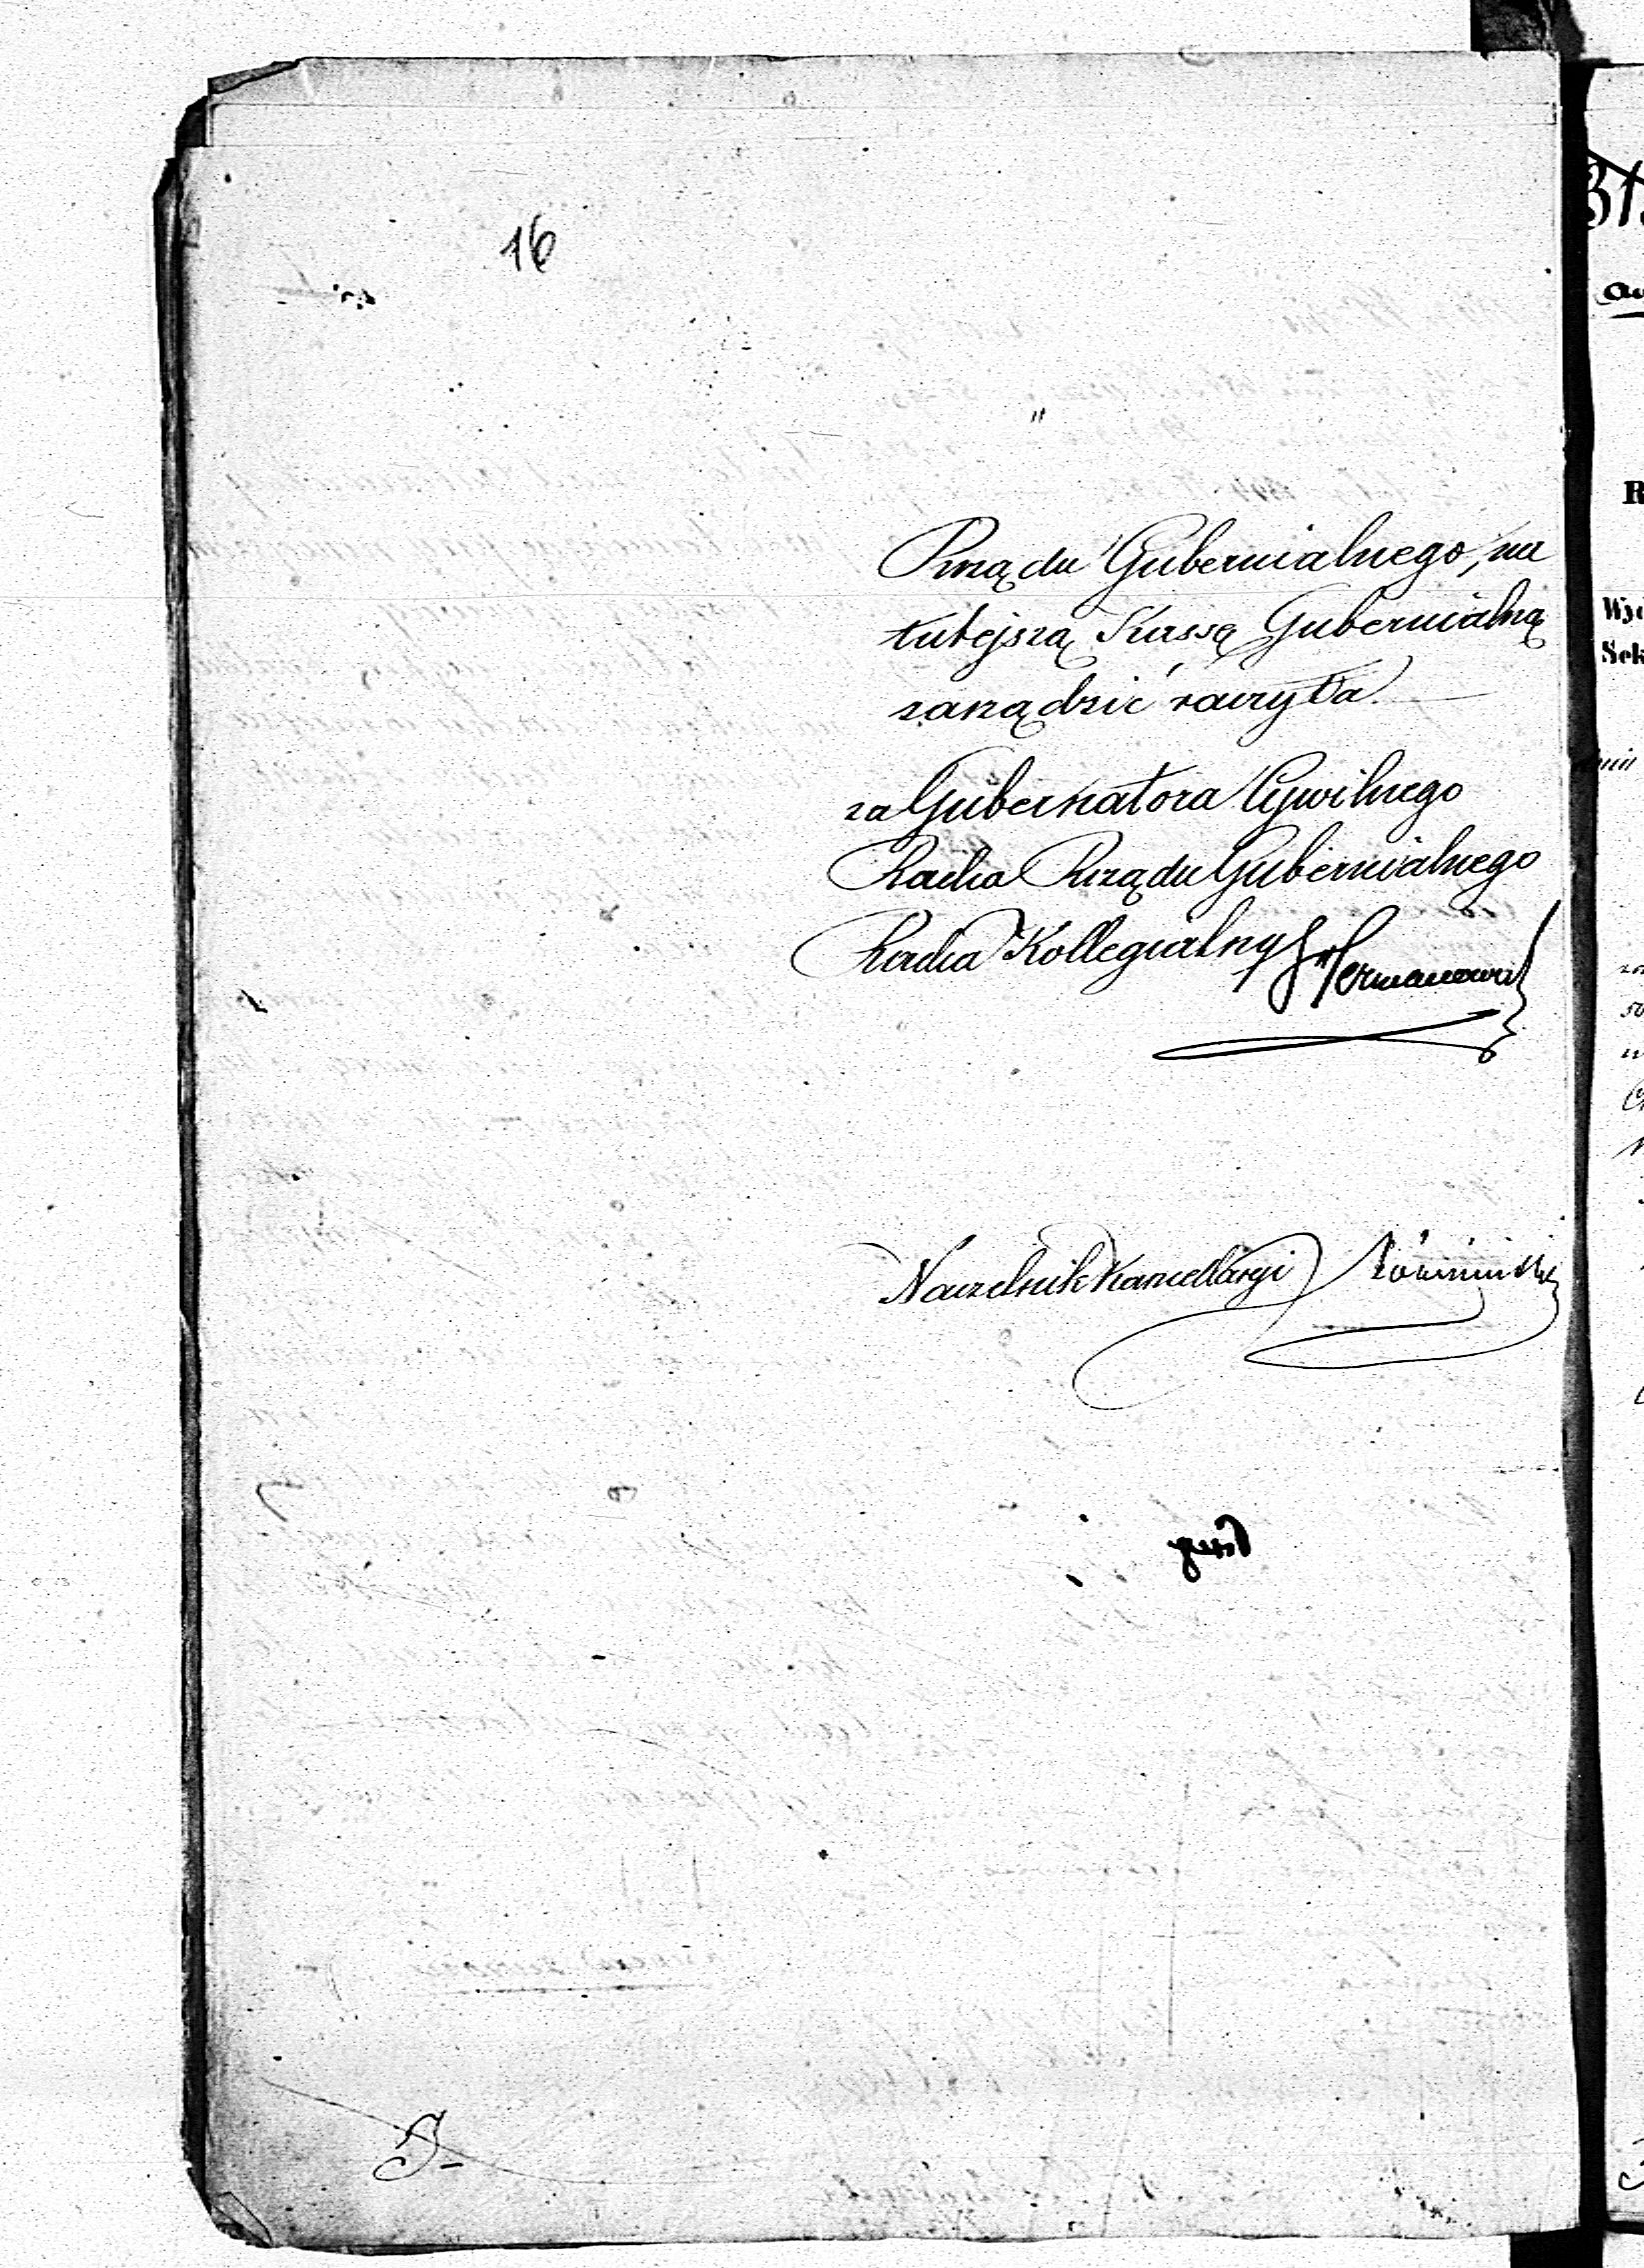 16
Rządu Gubernialnego, na
tutejszą Kassę Gubernialną
zarządzić raczyła.
za Gubernatora Cywilnego
Radca Rządu Gubernialnego
Radca Kollegialny Hermanowicz
Naczelnik Kancellaryi